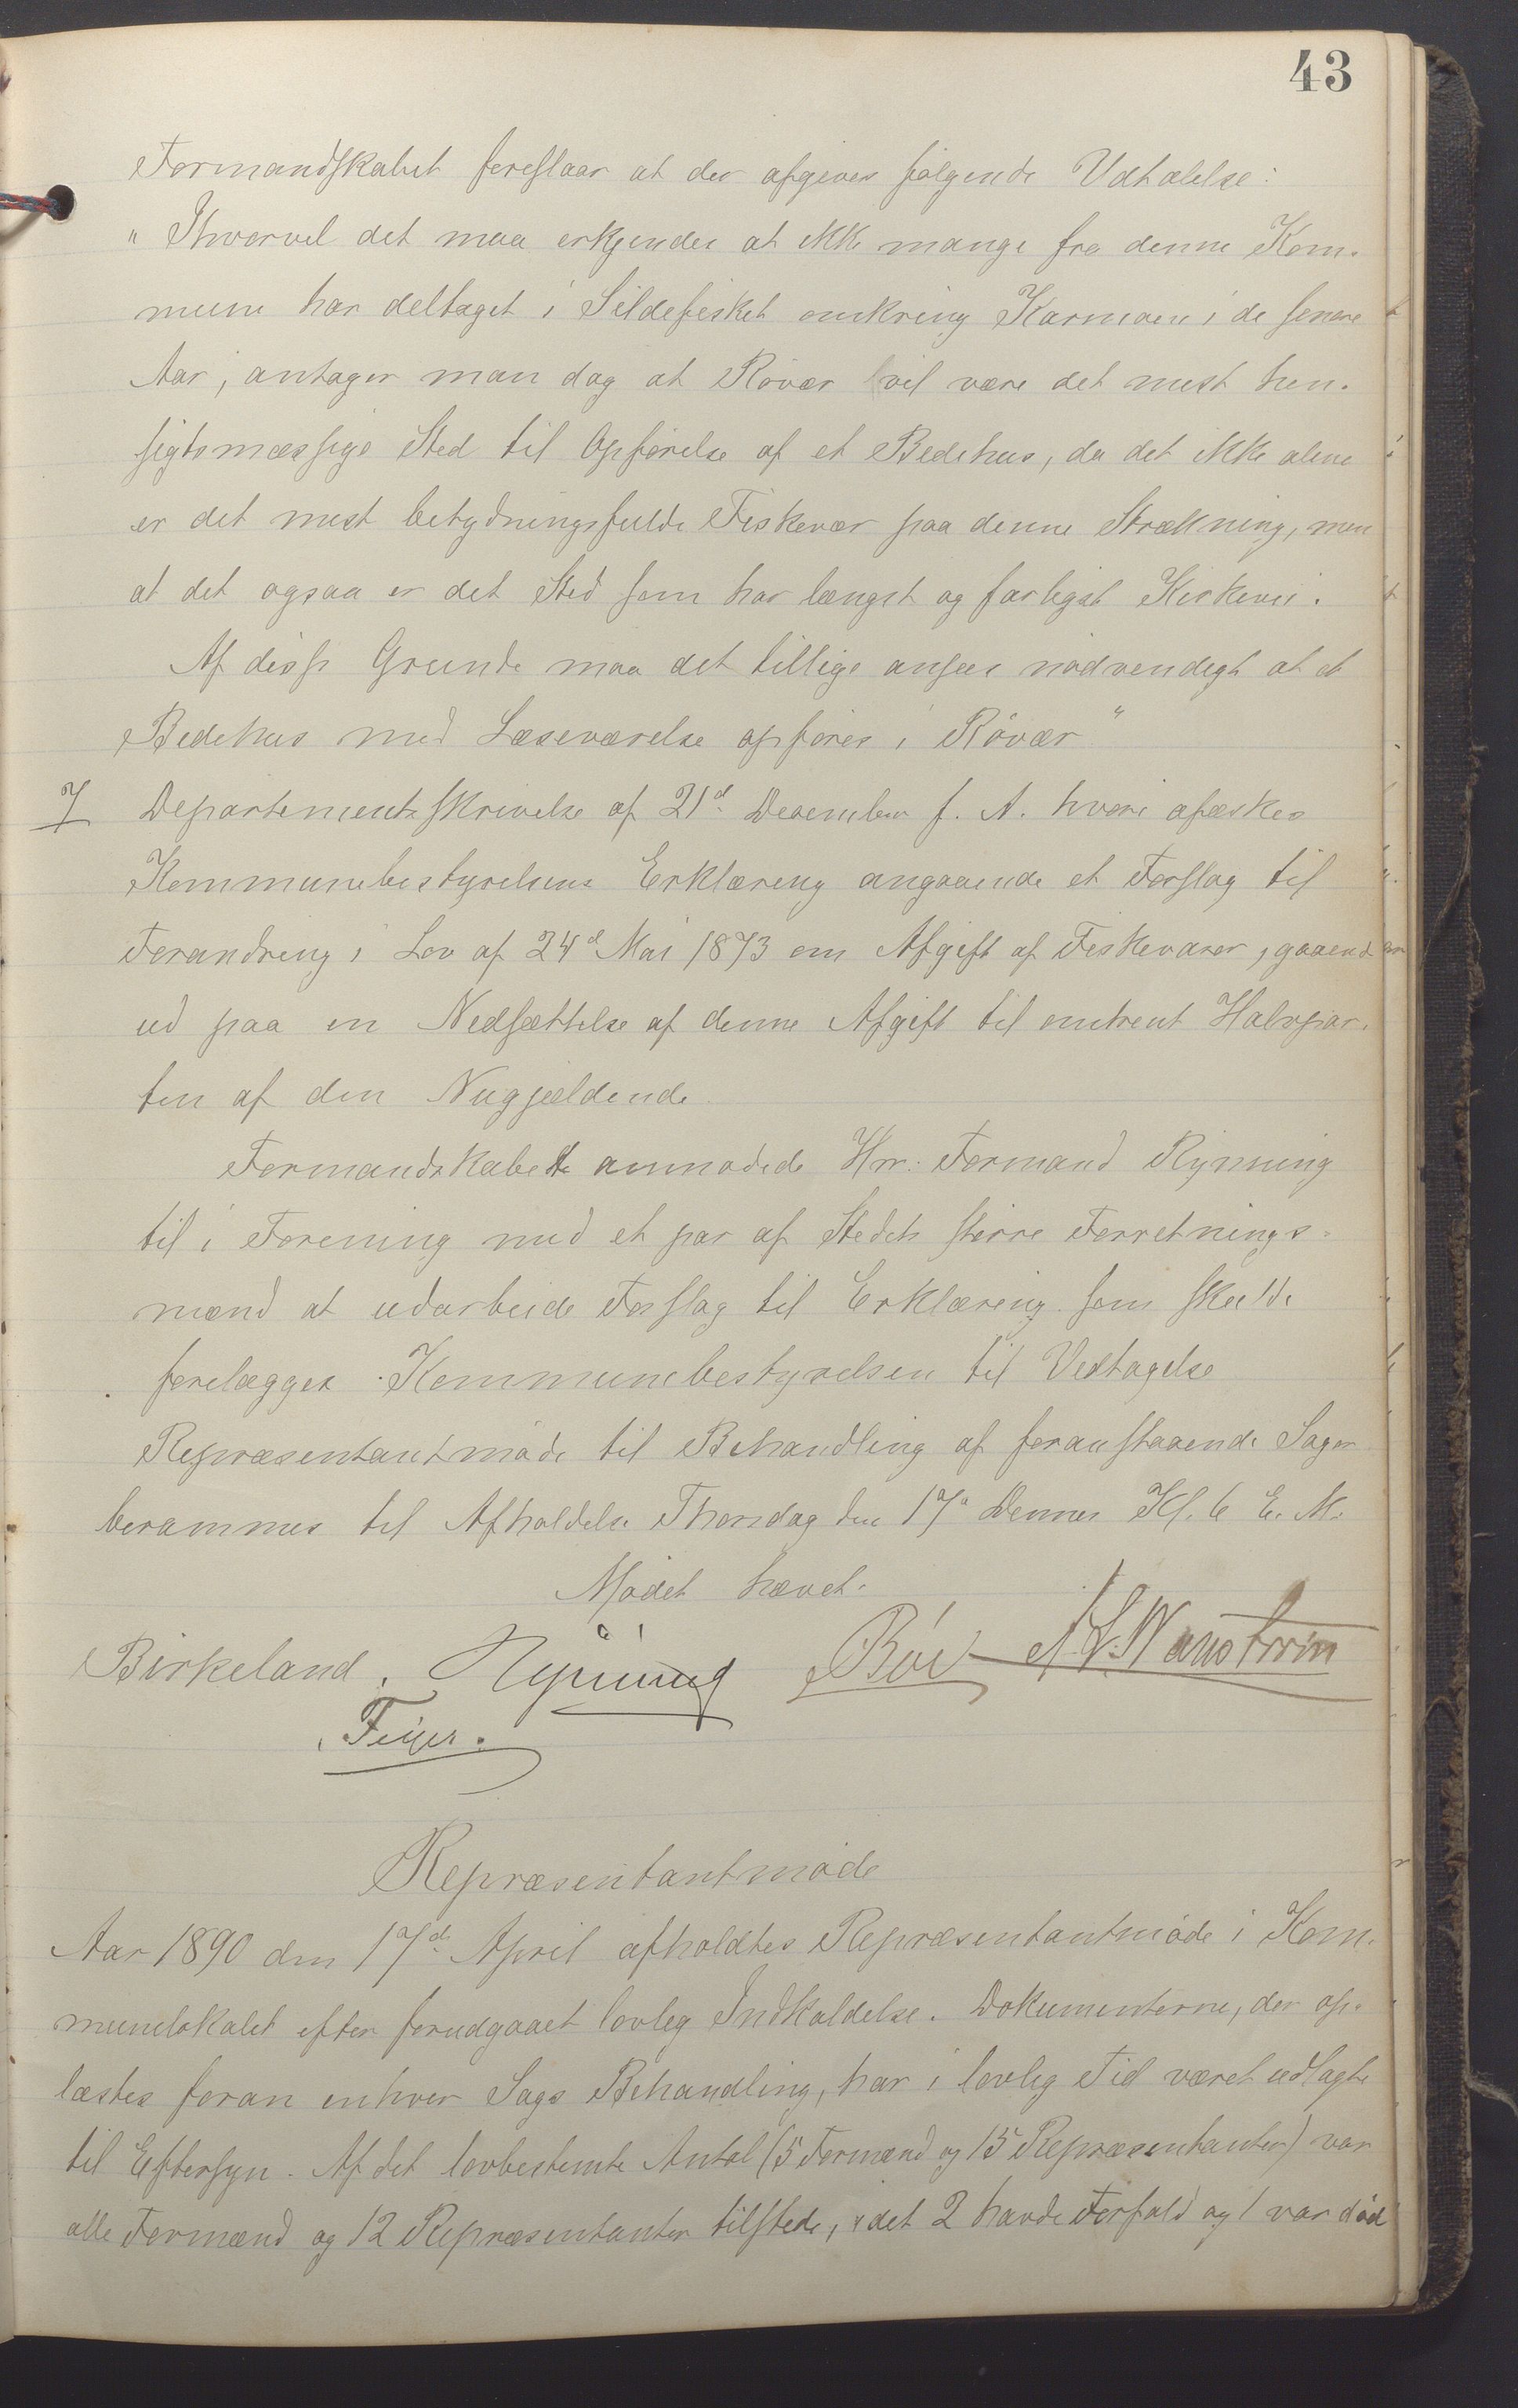 43
Formandskabet foreslaar at der afgives følgende Udtalelse:
"Ihvorvel det maa erkjendes at ikke mange fra denne Kom-
mune har deltaget i Sildefisket omkring Karmøen i de senere
Aar, antager man dog at Røvær vil være det mest hen-
sigtsmæssige Sted til Opførelse af et Bedehus, da det ikke alene
er det mest betydningsfulde Fiskevær paa denne Strækning, men
at det ogsaa er det Sted som har længst og farligst Kirkevei.
Af disse Grunde maa det tillige ansees nødvendigt at et
Bedehus med Læseværelse opføres i Røvær"
7 Departementsskrivelse af 21d December f. A. hvori afæskes
Kommunebestyrelsens Erklæring angaaende et Forslag til
Forandring i Lov af 24d Mai 1873 om Afgift af Fiskevarer, gaaende
ud paa en Nedsættelse af denne Afgift til omtrent Halvpar-
ten af den Nugjældende.
Formandskabet anmodede Hrr. Formand Rynning
til i Forening med et par af Stedets større Forretnings-
mænd at udarbeide Forslag til Erklæring som skulde
forelægges Kommunebestyrelsen til Vedtagelse
Repræsentantmøde til Behandling af foranstaaende Sager
berammes til Afholdelse Thorsdag den 17de Dennes Kl. 6 E. M.
Mødet hævet.
Birkeland. Rynning Bøe
Feyer.
Repræsentantmøde
Aar 1890 den 17d April afholdtes Repræsentantmøde i Kom-
munelokalet efter forudgaaet lovleg Indkaldelse. Dokumenterne, der op-
læstes foran enhver Sags Behandling, har i lovleg Tid været udlagte
til Eftersyn. Af det lovbestemte Antal (5 Formænd og 15 Repræsentanter) var
alle Formænd og 12 Repræsentanter tilstede, idet 2 havde Forfald og 1 var død